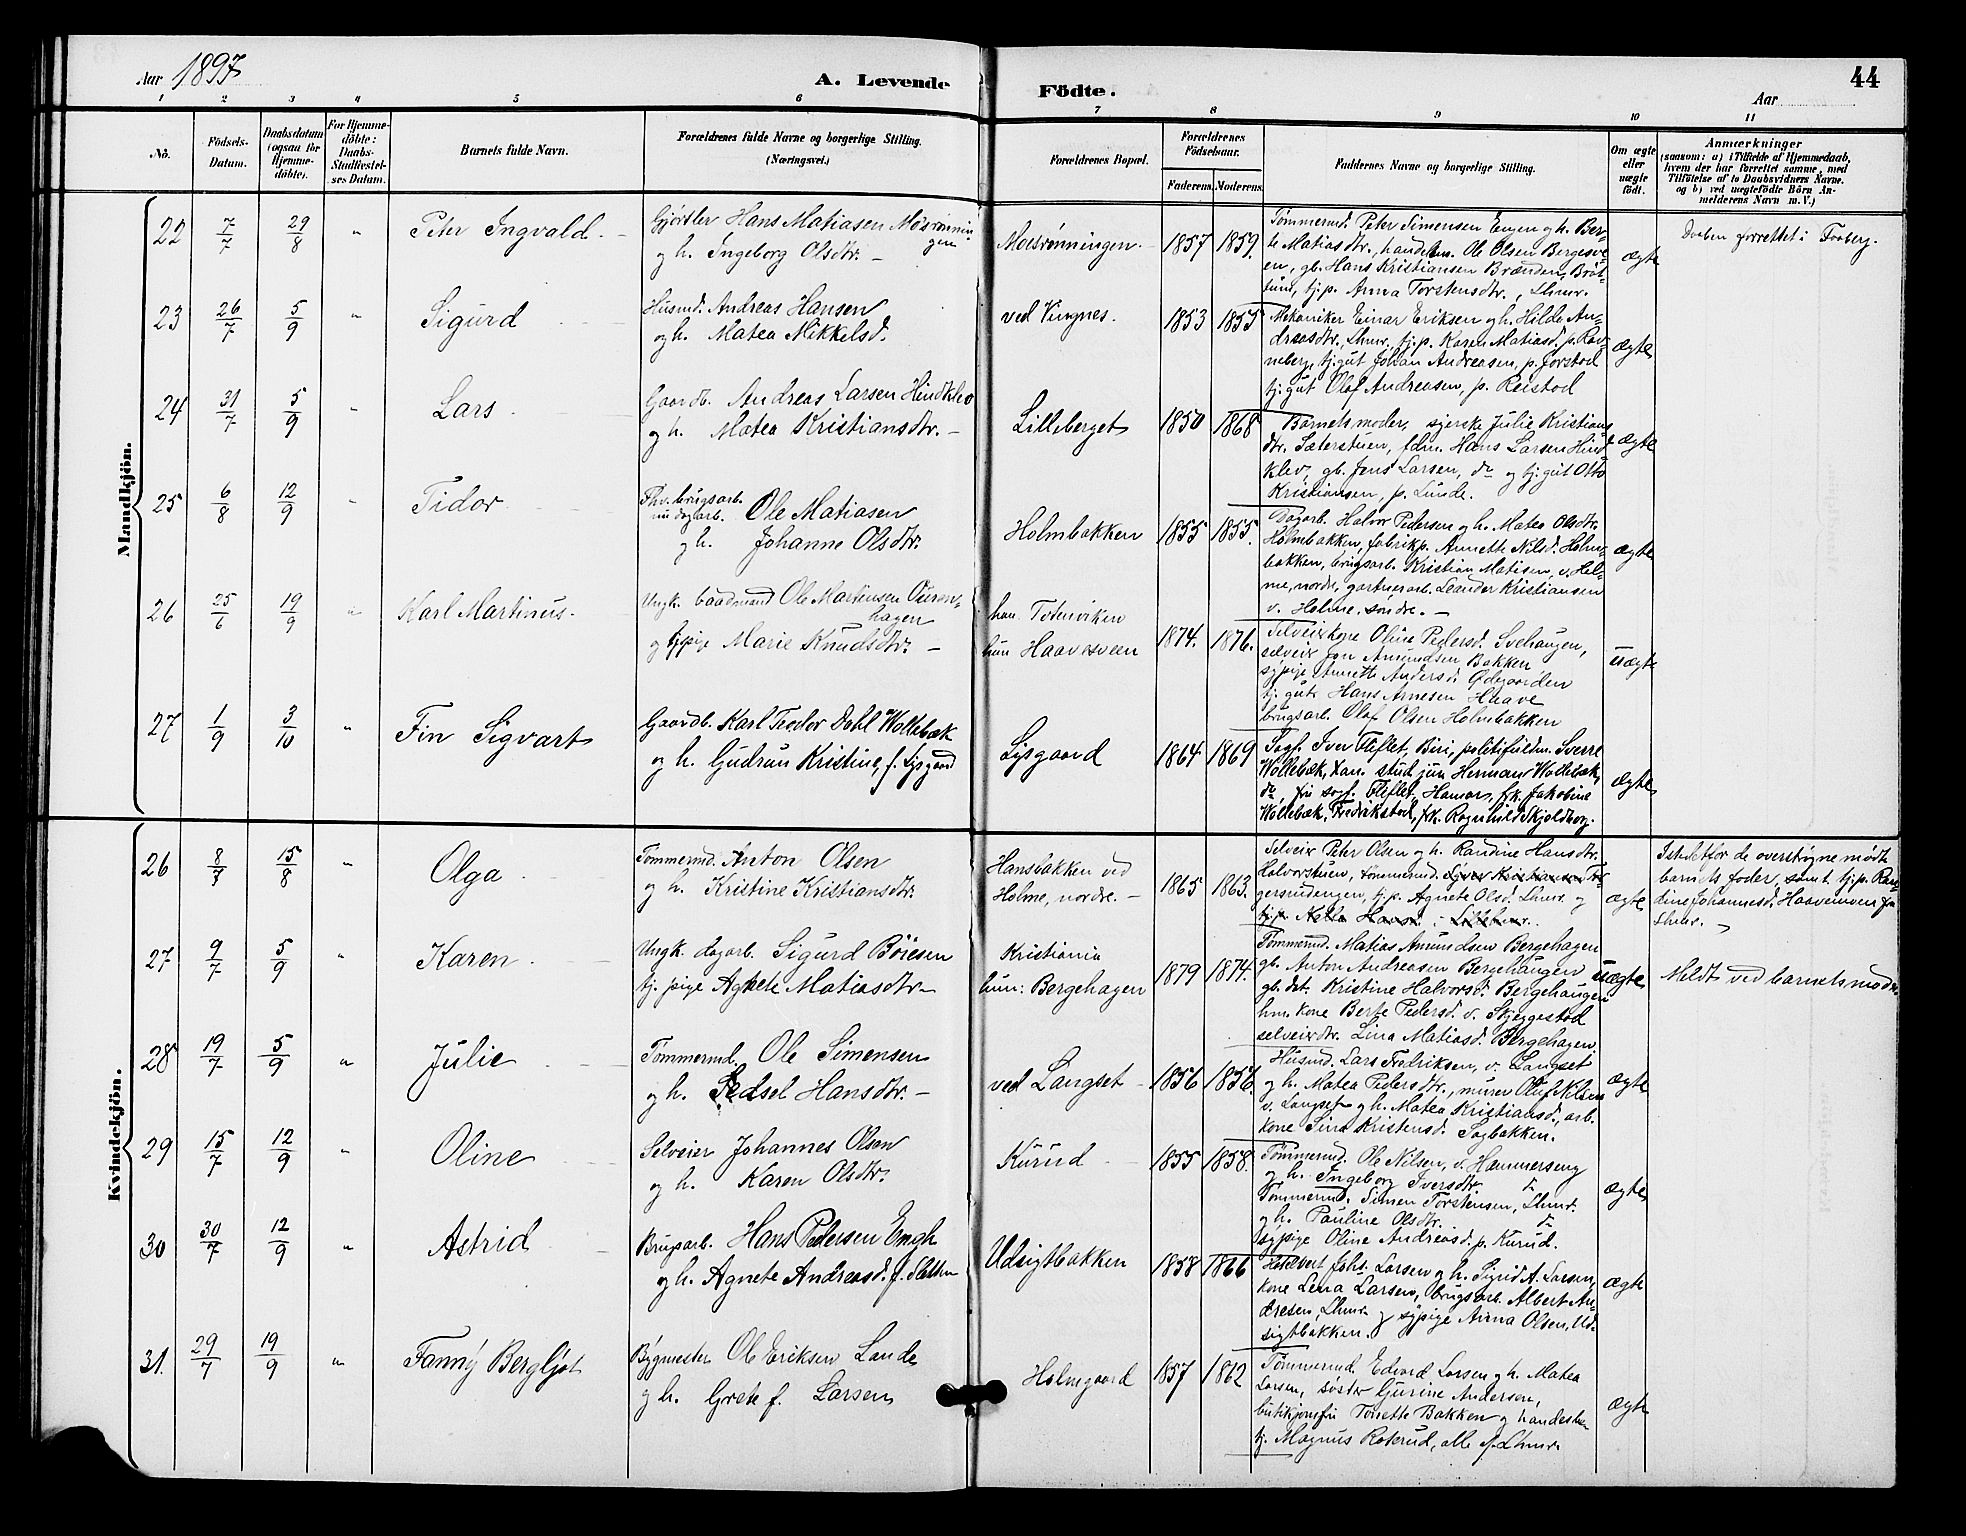 Aar 1897
A. Levende
Födte.
44
Aar
1 2 3 4 5 6 7 8 9 10 11
No.
Födsels-
Datum.
Daabsdatum
(ogsaa för
Hjemme-
döbte).
For Hjemme-
döbte:
Daabs-
Stadfæstel-
ses Datum.
Barnets fulde Navn.
Forældrenes fulde Navne og borgerlige Stilling.
(Næringsvei.)
Forældrenes Bopæl.
Forældrenes
Födselsaar.
Faderens. Moderens.
Faddernes Navne og borgerlige Stilling.
Om ægte
eller
uægte
födt.
Anmærkninger
(saasom: a) i Tilfælde af Hjemmedaab,
hvem der har forrettet samme, med
Tilföielse af to Daabsvidners Navne,
og b) ved uægtefödte Börn An-
melderens Navn m. V.)
Mandkjön.
22 7/7 29/8 " Peter Ingvald.
Gjørtler Hans Matiasen Moesrønnin-
gen
og h. Ingeborg Olsdtr.
Moesrønningen. 1857 1859.
Tømmermd. Peter Simensen Engen og h. Ber-
te Matiasdtr., handelsm. Ole Olsen Bergesve-
en, gb. Hans Kristiansen Brænden, Bröt-
tum, tj.p. Anna Torstensdtr., Lhmr.
ægte
Daaben forrettet i Faaberg.
23 26/7 5/9 " Sigurd
Husmd. Andreas Hansen
og h. Matea Mikkelsd.
ved Vingnes. 1853 1855
Mekaniker Einar Eriksen og h. Hilda An-
dreasdtr., Lhmr., tj.p. Karen Matiasd. p. Rov-
neberg, tj.gut Johan Andreasen, p. Jorstad
tj.gut Olaf Andreasen, p. Reistad
ægte
24 31/7 5/9 " Lars
Gaardb. Andreas Larsen Hindklev
og h. Matea Kristiansdtr.
Lilleberget 1850 1868
Barnets moder, syerske Julie Kristians-
dtr. Sæterstuen, fdm. Hans Larsen Hind-
klev, gb. Jens Larsen, do og tj.gut Otto
Kristiansen, p. Lunde.
ægte
25 6/8 12/9 " Tidor
Fhv. brugsarb.
nu dagarb. Ole Matiasen
og h. Johanne Olsdtr.
Holmbakken 1855 1855.
Dagarb. Halvor Pedersen og h. Matea Olsdtr.
Holmbakken, fabrikp. Annette Nilsd. Holm-
bakken, brugsarb. Kristian Matisen, v. Hol-
me, nordre, gartnerarb. Leander Kristiansen
v. Holme, söndre.
ægte
26 25/6 19/9 " Karl Martinus.
Ungk. baadmand Ole Martinsen Ouren-
hagen
og tj.pige Marie Knudsdtr.
han Totenviken
hun Haavesveen 1874. 1876.
Selveierkone Oline Pedersd. Svehaugen,
selveier Jon Amundsen Bakken
sypige Annette Andersd. Ødegaarden
tj. gut Hans Arnesen Haave
brugsarb. Olaf Olsen Holmbakken
uægte
27 1/9 3/10 " Fin Sigvart
Gaardb. Karl Teodor Dahl Wollebæk
og h. Gudrun Kristine, f. Lysgaard
Lysgaard 1864 1869
Sagf. Iver Fliflet, Biri, politifuldm. Sverre
Wollebæk, Xan. stud jur Herman Wollebæk,
do, fru sagf. Fliflet, Hamar, frk. Jakobine
Wollebæk, Fredrikstad, frk. Ragnhild Skjoldborg.
ægte
Kvindekjön.
26 8/7 15/8 " Olga
Tømmermd. Anton Olsen
og h. Kristine Kristiansdtr.
Hansbakken ved
Holme, nordre. 1865 1863.
Selveier Peter Olsen og h. Randine Hansdtr.
Halvorstuen, tømmermd. Syver Kristiansen Tor-
gersrudengen, tj.p. Agnete Olsd. Lhmr. og
tj.p. Netta Hansd. Lilleham.
ægte
Istedetfor de overstrøgne mødte
barnets fader, samt tj.p. Ran-
dine Johannesd. Haavemoen fra
Lhmr.
27 9/7 5/9 " Karen
Ungk. dagarb. Sigurd Böiesen
tj. pige Agnete Matiasdtr.
Kristiania
hun: Bergehagen 1879 1874.
Tømmermd. Matias Amundsen Bergehagen
gb. Anton Andreasen Bergehaugen
gb. dtr. Kristine Halvorsd. Bergehaugen
hm. kone Berte Pedersd. v. Skjeggestad
selveierdtr. Lina Matiasd. Bergehagen
uægte
Meldt ved barnets moder.
28 19/7 5/9 " Julie
Tømmermd. Ole Simensen
og h. Sedsel Hansdtr.
ved Langset 1856 1856.
Husmd. Lars Fredriksen, v. Langset
og h. Matea Pedersdtr., murer Oluf Nilsen
v. Langset og h. Matea Kristiansd., arb.
kone Sina Kristensd. Sagbakken.
ægte
29 15/7 12/9 " Oline
Selveier Johannes Olsen
og h. Karen Olsdtr.
Kurud 1855 1858.
Tømmermd. Ole Nilsen, v. Hammerseng
og h. Ingeborg Iversdtr. do
Tømmermd. Simen Torstensen, Lhmr.
og h. Pauline Olsdtr. do
sypige Oline Andreasd. p. Kurud.
ægte
30 30/7 12/9 " Astrid
Brugsarb. Hans Pedersen Emgh
og h. Agnete Andreasd. f. Sletten
Udsigtbakken 1858 1866
Hotelvert Johs. Larsen og h. Sigrid A. Larsen,
kone Lena Larsen, brugsarb. Albert An-
dresen, Lhmr. og sypige Anna Olsen, Ud-
sigtbakken.
ægte
31. 29/7 19/9 " Fanny Bergljot
Bygmester Ole Eriksen Lande
og h. Grete f. Larsen
Holmgaard 1857 1862
Tømmermd. Edvard Larsen og h. Matea
Larsen, søster Gurine Andersen,
butikjomfru Tonette Bakken og handelsbe-
tj. Magnus Roterud, alle f. Lhmr.
ægte